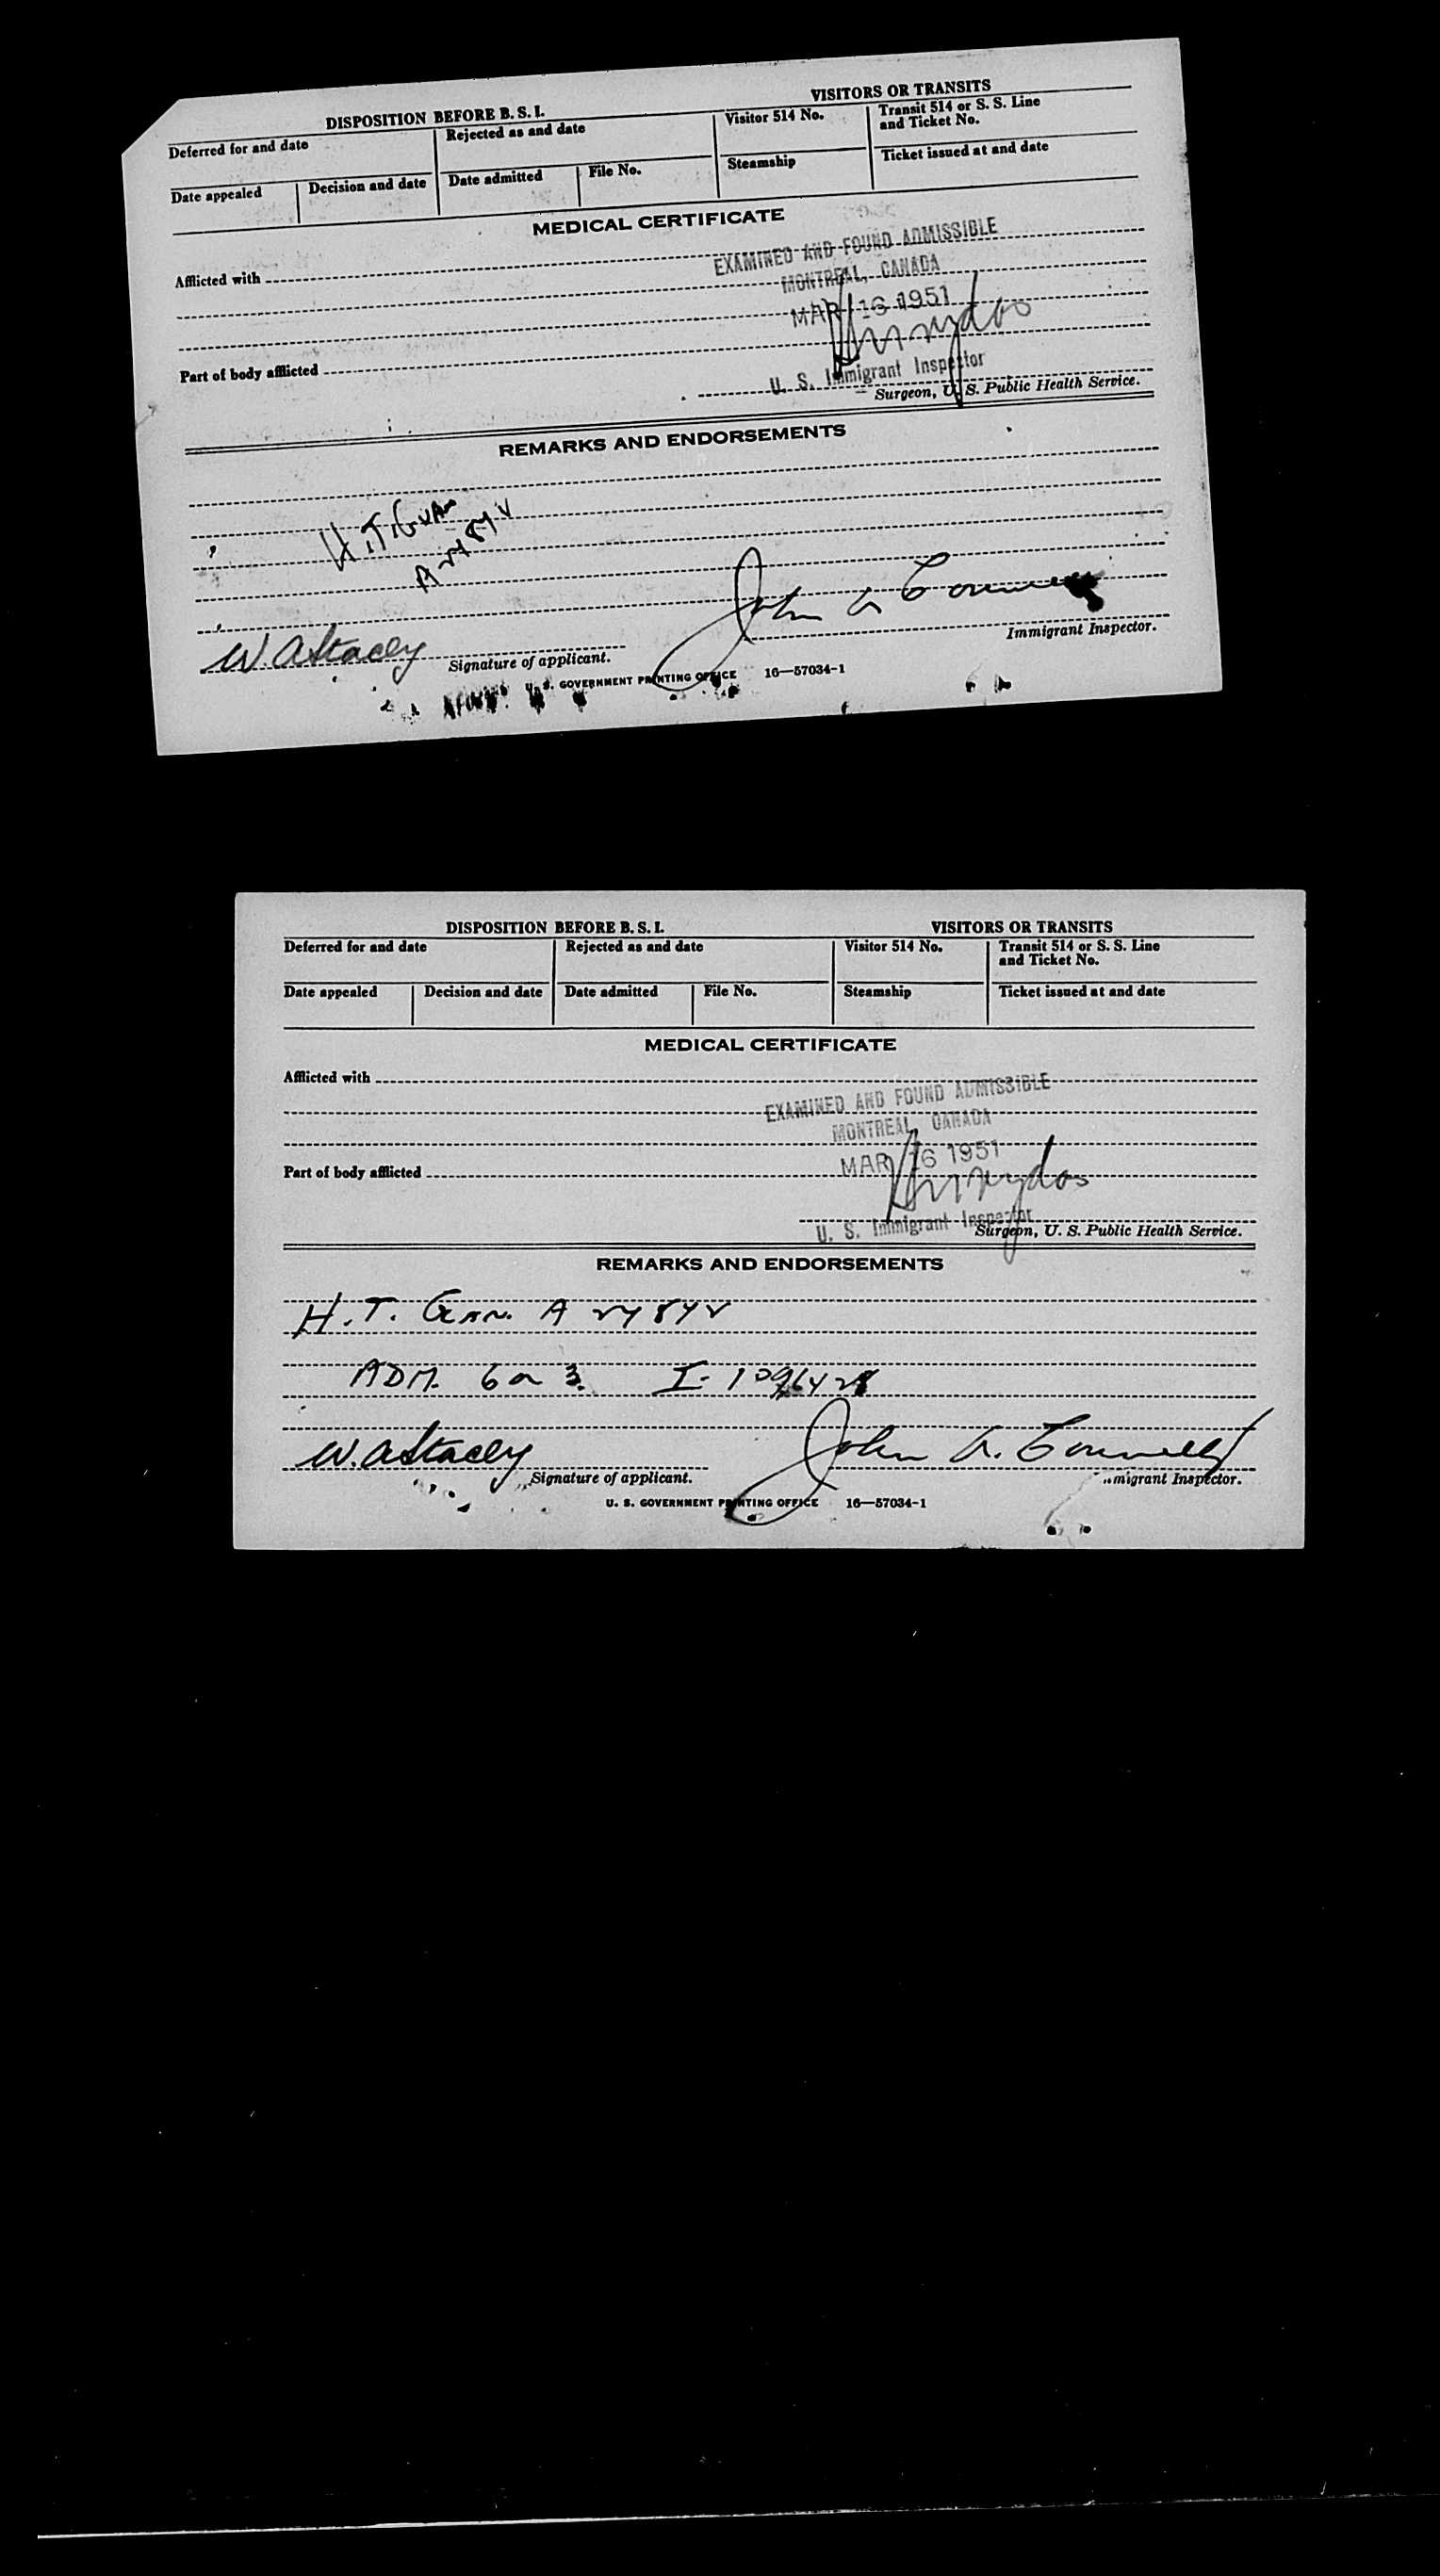 DISPOSITION BEFORE B. S. I.
VISITORS OR TRANSITS
Deferred for and date
Rejected as and date
Visitor 514 No.
Transit 514 or S. S. Line
and Ticket No.
Date appealed
Decision and date
Date admitted
File No.
Steamship
Ticket issued at and date
MEDICAL CERTIFICATE
Afflicted with
EXAMINED AND FOUND ADMISSIBLE
MONTREAL, CANADA
MAR 16 1951
Part of body afflicted
U. S. Immigrant Inspector
Surgeon, U. S. Public Health Service.
REMARKS AND ENDORSEMENTS
H.T.
John A
W. A Stacey
Signature of applicant.
Immigrant Inspector.
U. S. GOVERNMENT PRINTING OFFICE 16—57034-1
DISPOSITION BEFORE B. S. I.
VISITORS OR TRANSITS
Deferred for and date
Rejected as and date
Visitor 514 No.
Transit 514 or S. S. Line
and Ticket No.
Date appealed
Decision and date
Date admitted
File No.
Steamship
Ticket issued at and date
MEDICAL CERTIFICATE
Afflicted with
EXAMINED AND FOUND ADMISSIBLE
MONTREAL, CANADA
MAR 16 1951
Part of body afflicted
U. S. Immigrant Inspector
Surgeon, U. S. Public Health Service.
REMARKS AND ENDORSEMENTS
H. T. A
ADM.
W. A Stacey
John A. Connelly
Signature of applicant.
migrant Inspector.
U. S. GOVERNMENT PRINTING OFFICE 16—57034-1